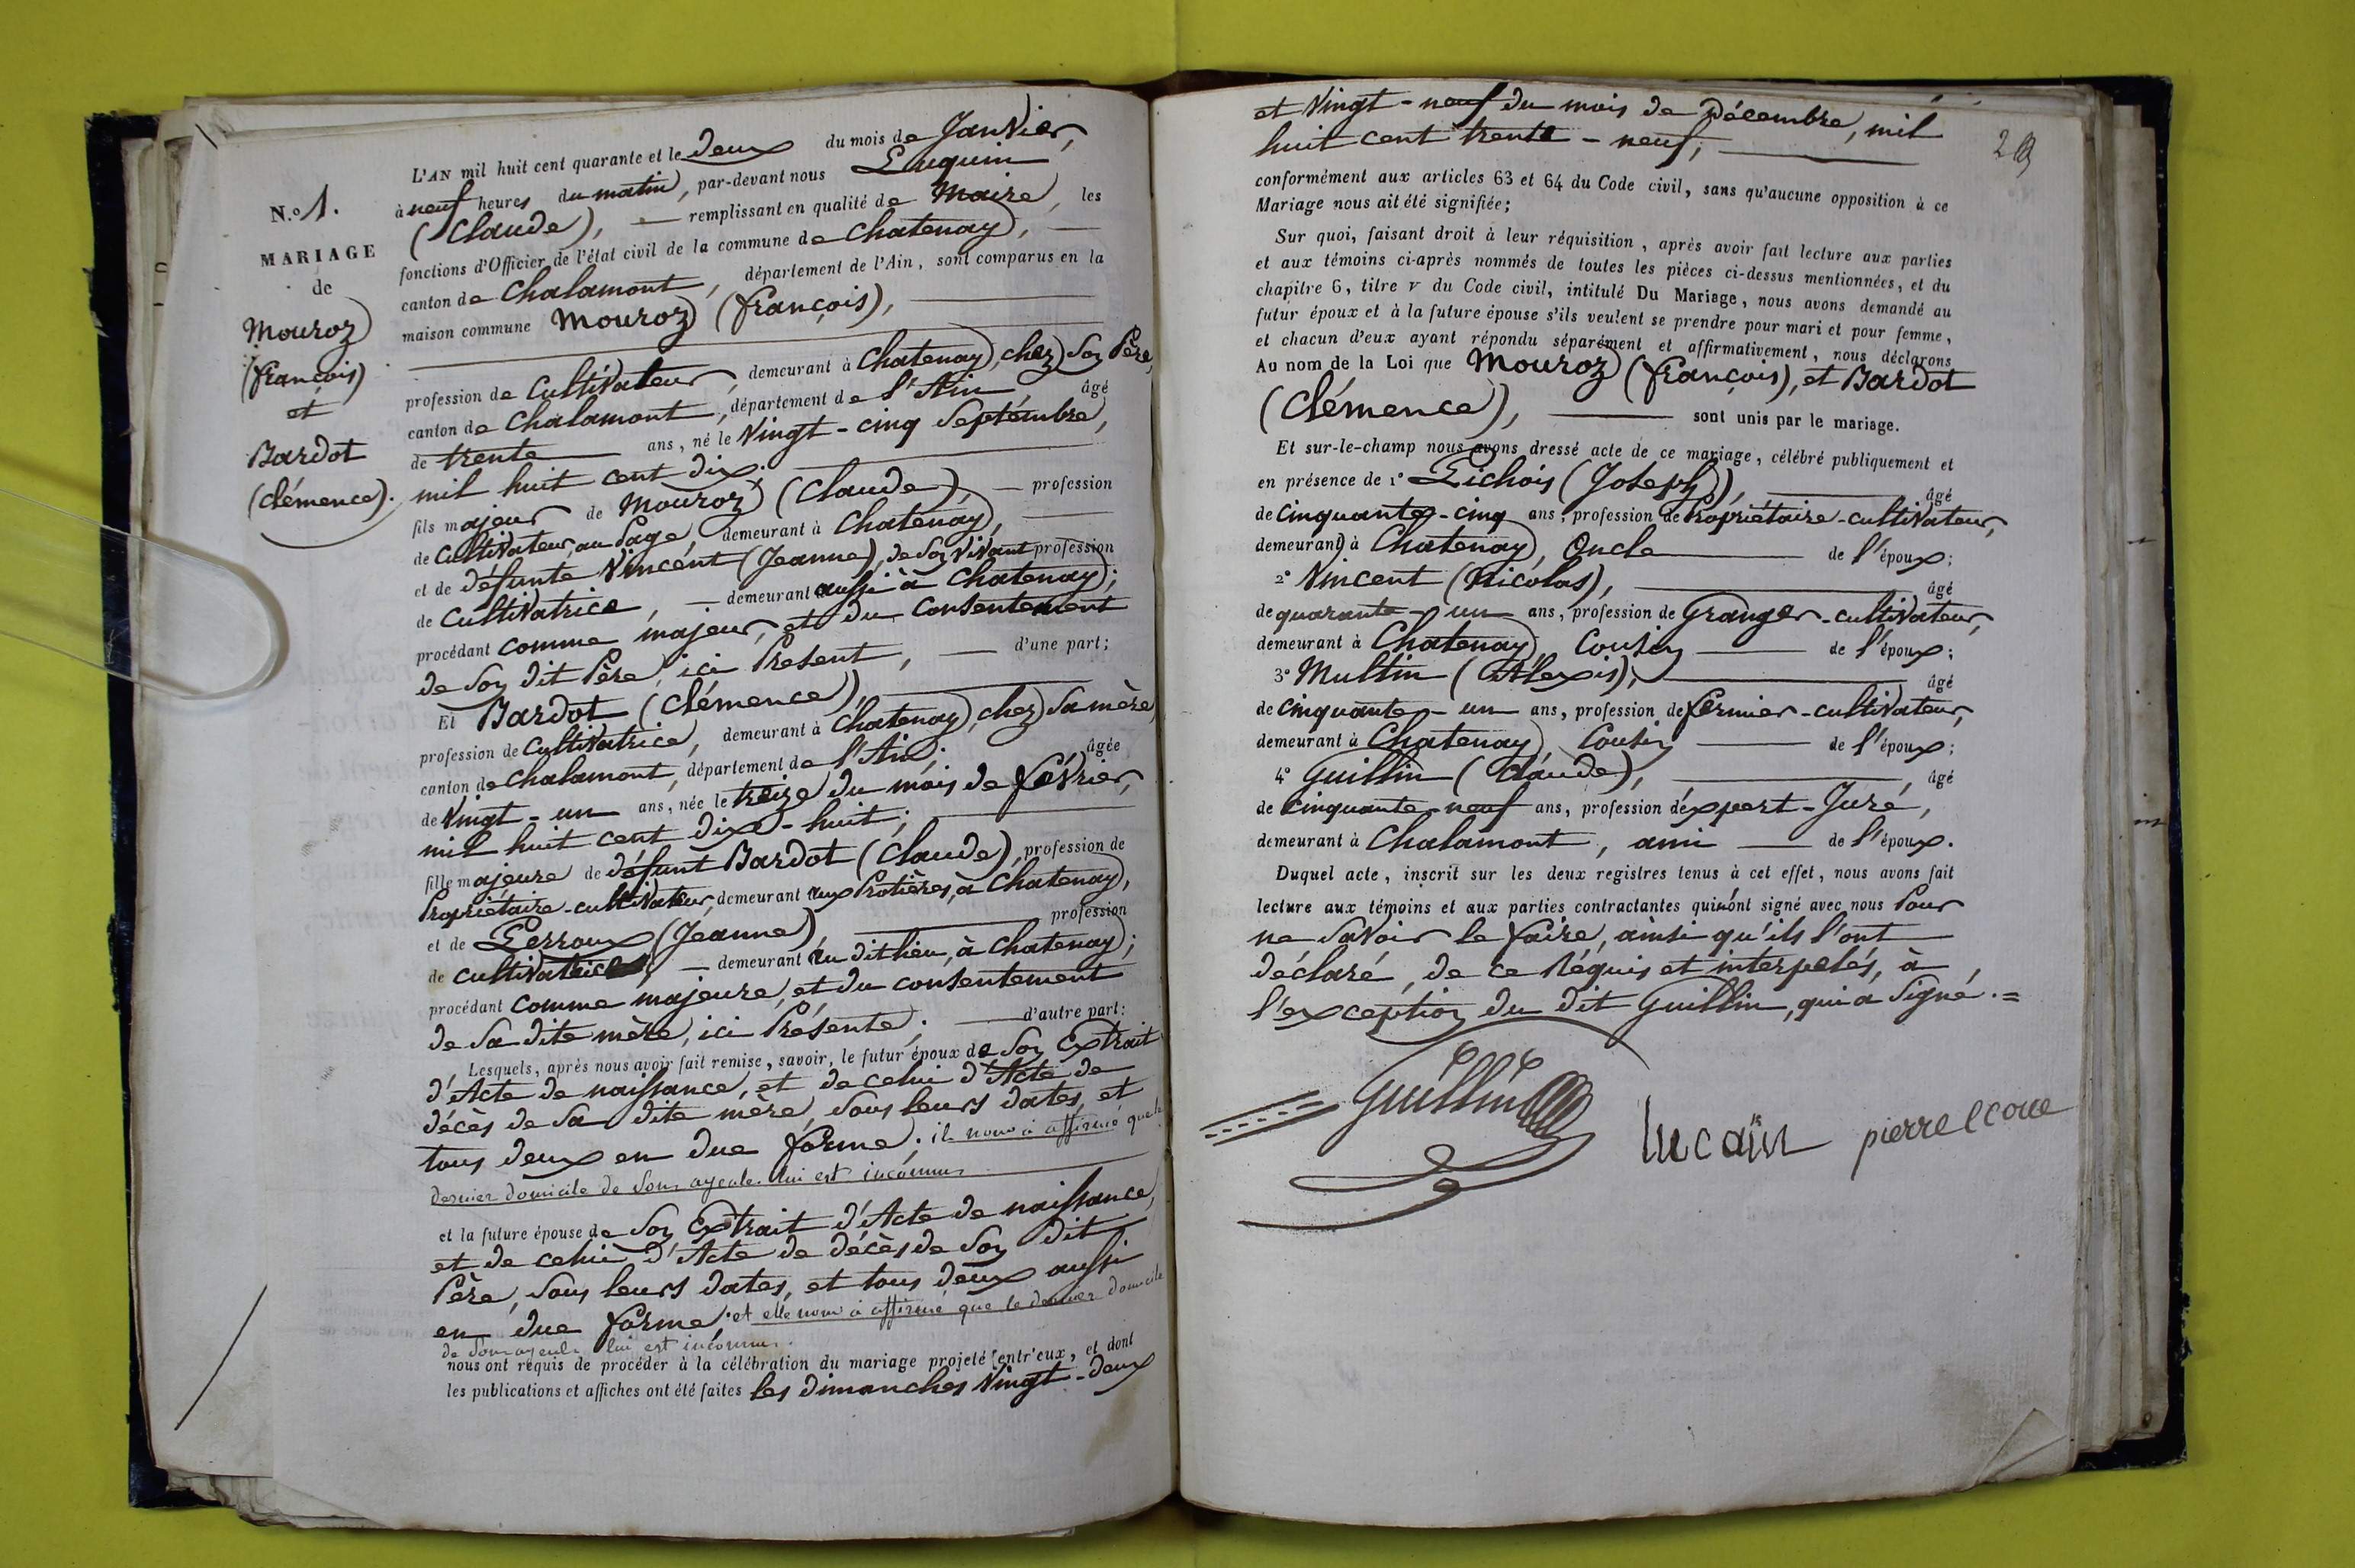 N.º 1.
MARIAGE
de
Mouroz
(françois)
et
Bardot
(Clémence).
L'AN mil huit cent quarante et le Deux du mois de Janvier,
à neuf heures du matin, par-devant nous Luquin
(Claude), remplissant en qualité de Maire, les
fonctions d'Officier de l'état civil de la commune de Chatenay,
canton de Chalamont, département de l'Ain, sont comparus en la
maison commune Mouroz (françois),
profession de Cultivateur, demeurant à Chatenay, chez Son Père,
canton de Chalamont, département de l'Ain âgé
de trente ans, né le Vingt-cinq Septembre,
mil huit cent dix;
fils majeur de Mouroz (Claude), profession
de Cultivateur, au Page, demeurant à Chatenay,
et de défunte Vincent (Jeanne), de Son Vivant profession
de Cultivatrice, demeurant aussi à Chatenay;
procédant comme majeur, et du Consentement
de Son dit Père, ici Présent, d'une part;
Et Bardot (Clémence),
profession de Cultivatrice, demeurant à Chatenay, chez Sa mère
canton de Chalamont, département de l'Ain; âgée
de Vingt-un ans, née le treize du mois de février,
mil huit cent dix-huit;
fille majeure de défunt Bardot (Claude), profession de
Propriétaire-cultivateur, demeurant aux Protières, à Chatenay,
et de Perroux (Jeanne), profession
de cultivatrice, demeurant au dit lieu, à Chatenay;
procédant comme majeure, et du consentement
de Sa dite mère, ici Présente; d'autre part:
Lesquels, après nous avoir fait remise, savoir, le futur époux de Son Extrait
d'Acte de naissance, et de celui d'Acte de
décès de Sa dite mère, Sous leurs dates, et
tous deux en due forme; il nous a affirmé que le
dernier domicile de Son ayeule lui est inconnu
et la future épouse de Son Extrait d'Acte de naissance,
et de celui d'Acte de décès de Son dit
Père, Sous leurs dates, et tous deux aussi
en due forme; et elle nous a affirmé que le dernier domicile
de Son ayeule lui est inconnu.
nous ont requis de procéder à la célébration du mariage projeté entr'eux, et dont
les publications et affiches ont été faites les dimanches Vingt-deux
et Vingt-neuf du mois de Décembre, mil
huit cent trente-neuf;
conformément aux articles 63 et 64 du Code civil, sans qu'aucune opposition à ce
Mariage nous ait été signifiée;
Sur quoi, faisant droit à leur réquisition, après avoir fait lecture aux parties
et aux témoins ci-après nommés de toutes les pièces ci-dessus mentionnées, et du
chapitre 6, titre v du Code civil, intitulé Du Mariage, nous avons demandé au
futur époux et à la future épouse s'ils veulent se prendre pour mari et pour femme,
et chacun d'eux ayant répondu séparément et affirmativement, nous déclarons
Au nom de la Loi que Mouroz (françois), et Bardot
(Clémence), sont unis par le mariage.
Et sur-le-champ nous avons dressé acte de ce mariage, célébré publiquement et
en présence de 1º Pichois (Joseph), âgé
de Cinquante-cinq ans, profession de Propriétaire-cultivateur,
demeurant à Chatenay, Oncle de l'époux;
2º Vincent (Nicolas), âgé
de quarante-un ans, profession de Granger-cultivateur,
demeurant à Chatenay, Cousin de l'époux;
3º Multin (Alexis), âgé
de Cinquante-un ans, profession de fermier-cultivateur,
demeurant à Chatenay, Cousin de l'époux;
4º Guillin (Claude), âgé
de Cinquante-neuf ans, profession d'expert-Juré,
demeurant à Chalamont, ami de l'époux.
Duquel acte, inscrit sur les deux registres tenus à cet effet, nous avons fait
lecture aux témoins et aux parties contractantes qui n'ont signé avec nous Pour
ne Savoir le faire, ainsi qu'ils l'ont
déclaré, de ce Réquis et interpelés, à
l'exception du dit Guillin, qui a Signé.=
Guillin